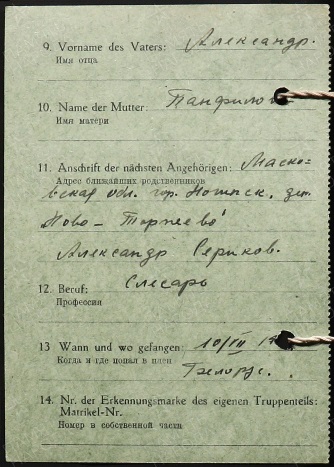 9. Vorname des Vaters: Александр.
Имя отца
10. Name der Mutter: Панфило
Имя матери
11. Anschrift der nächsten Angehörigen: Моско-
Адрес ближайших родственников
вская обл. гор. Ногинск, дер.
Ново-
Александр Сериков.
12. Beruf: Слесарь
Профессия
13 Wann und wo gefangen: 10/VII 19
Когда и где попал в плен
Белорус.
14. Nr. der Erkennungsmarke des eigenen Truppenteils:
Matrikel-Nr.
Номер в собственной части